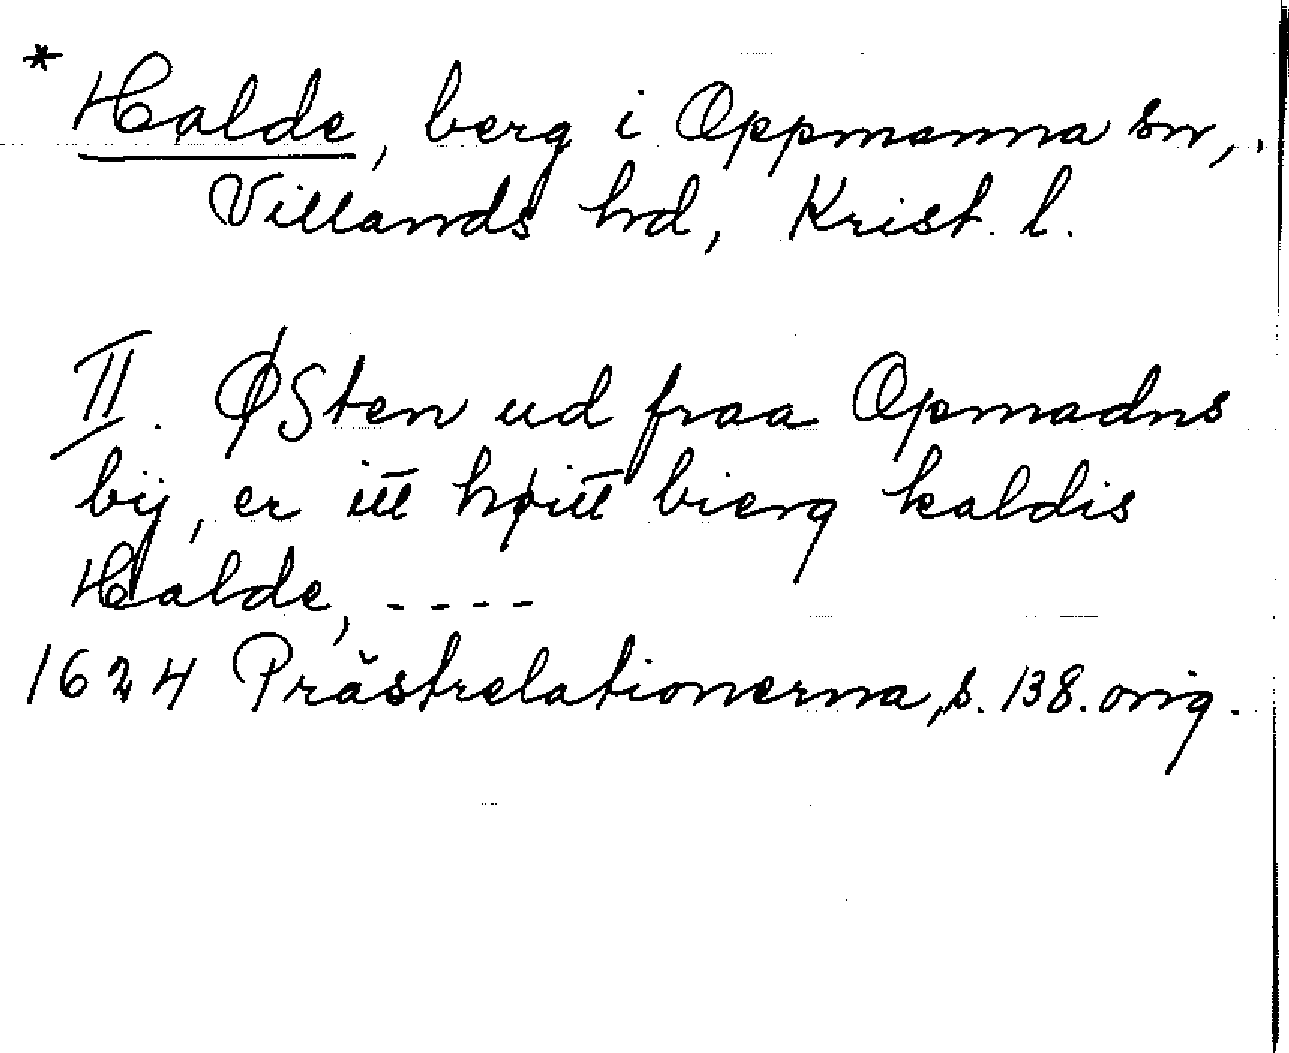 * Halde, berg i Oppmanna sn,
Villands hd, Krist. l.
II. ØSten ud fraa Opmadns
bÿ, er itt høitt bierg kaldis
Halde, ----
1624 Prästrelationerna, s. 138. orig.